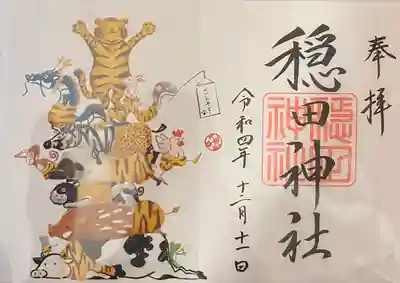 奉拝
穏田神社
穏田
神社
令和四年 十二月十一日